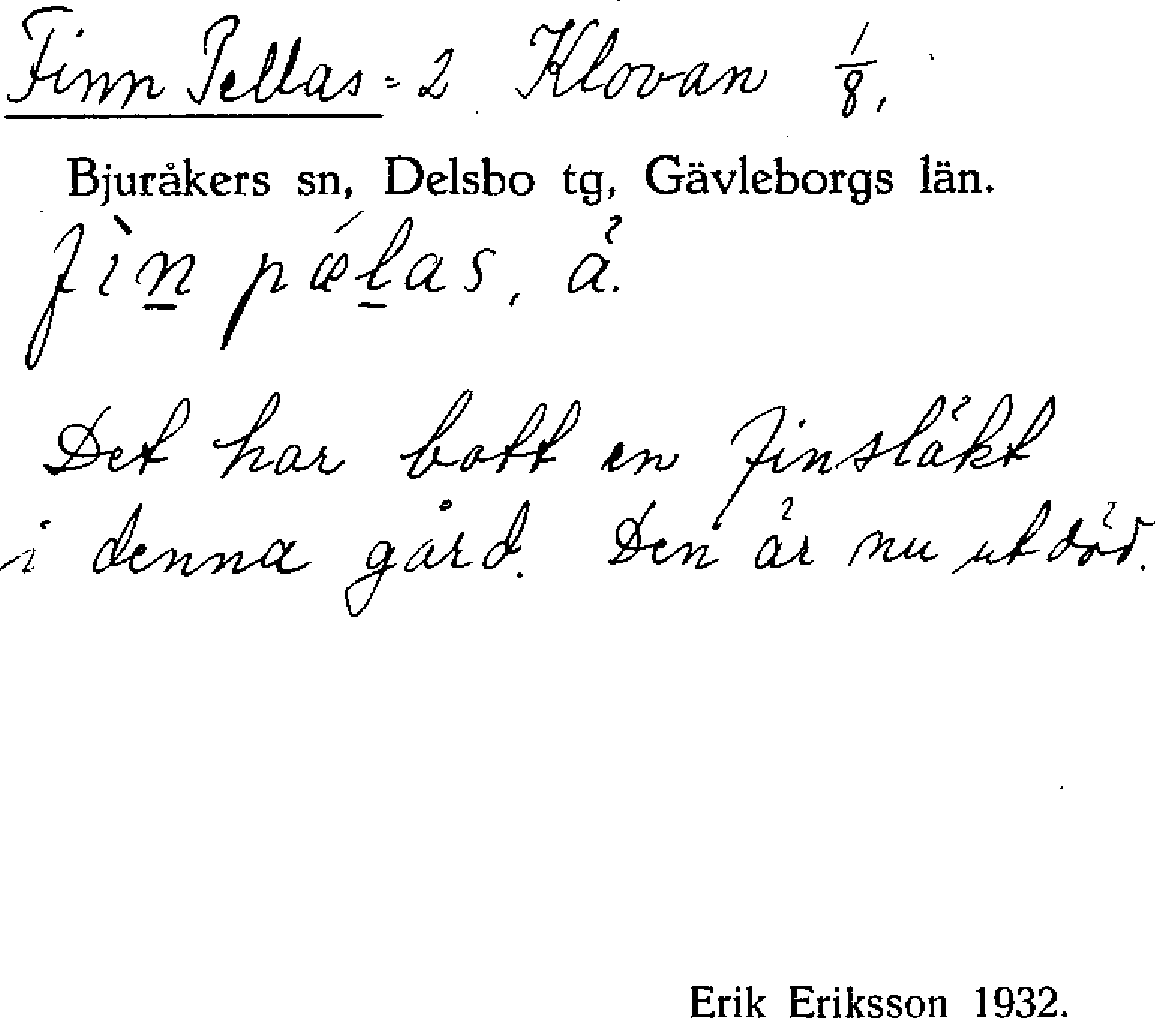 Finn Pellas = 2 Klovan 1/8,
Bjuråkers sn, Delsbo tg, Gävleborgs län.
fìn pǽlas, ä.
Det har bott en finsläkt
i denna gård. Den är nu utdöd.
Erik Eriksson 1932.